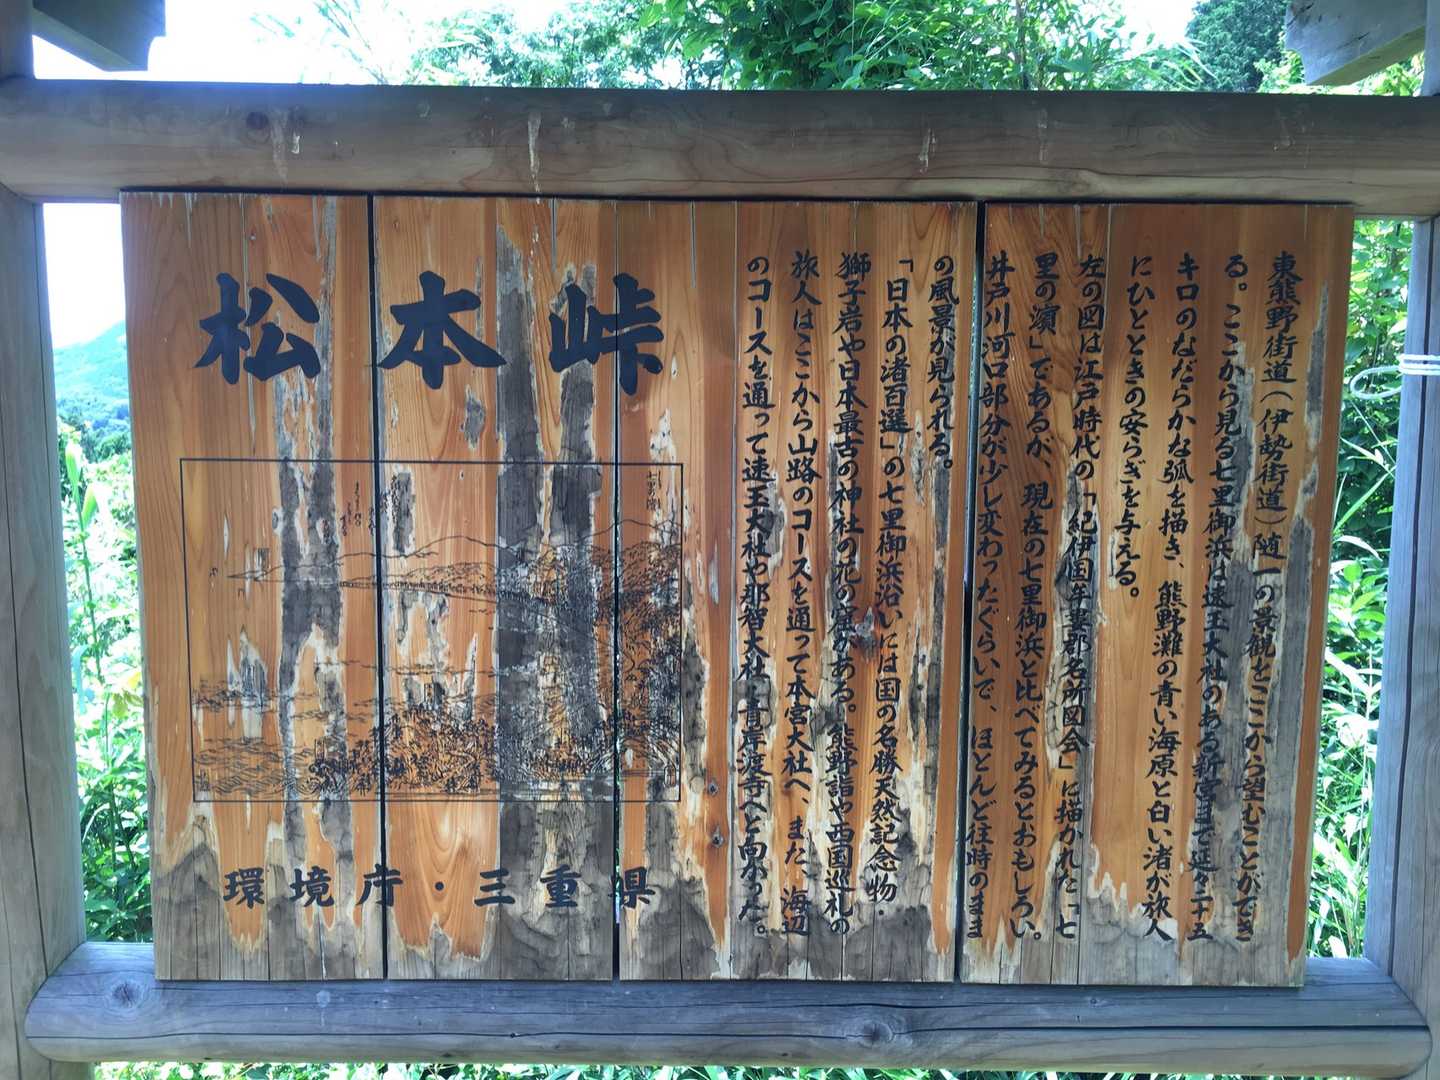 松本峠
東熊野街道(伊勢街道)随一の景観をここから望むことができ
る。ここから見る七里御浜は速玉大社のある新宮まで延々二十五
キロのなだらかな弧を描き、熊野灘の青い海原と白い渚が旅人
にひとときの安らぎを与える。
左の図は江戸時代の「紀伊国牟婁郡名所図会」に描かれた「七
里の濱」であるが、現在の七里御浜と比べてみるとおもしろい。
井戸川河口部分が少し変わったぐらいで、ほとんど往時のまま
の風景が見られる。
「日本の渚百選」の七里御浜沿いには国の名勝天然記念物・
獅子岩や日本最古の神社の花の窟がある。熊野詣や西国巡礼の
旅人はここから山路のコースを通って本宮大社へ、また、海辺
のコースを通って速玉大社や那智大社・青岸渡寺へと向かった。
七里濱
環境庁・三重県